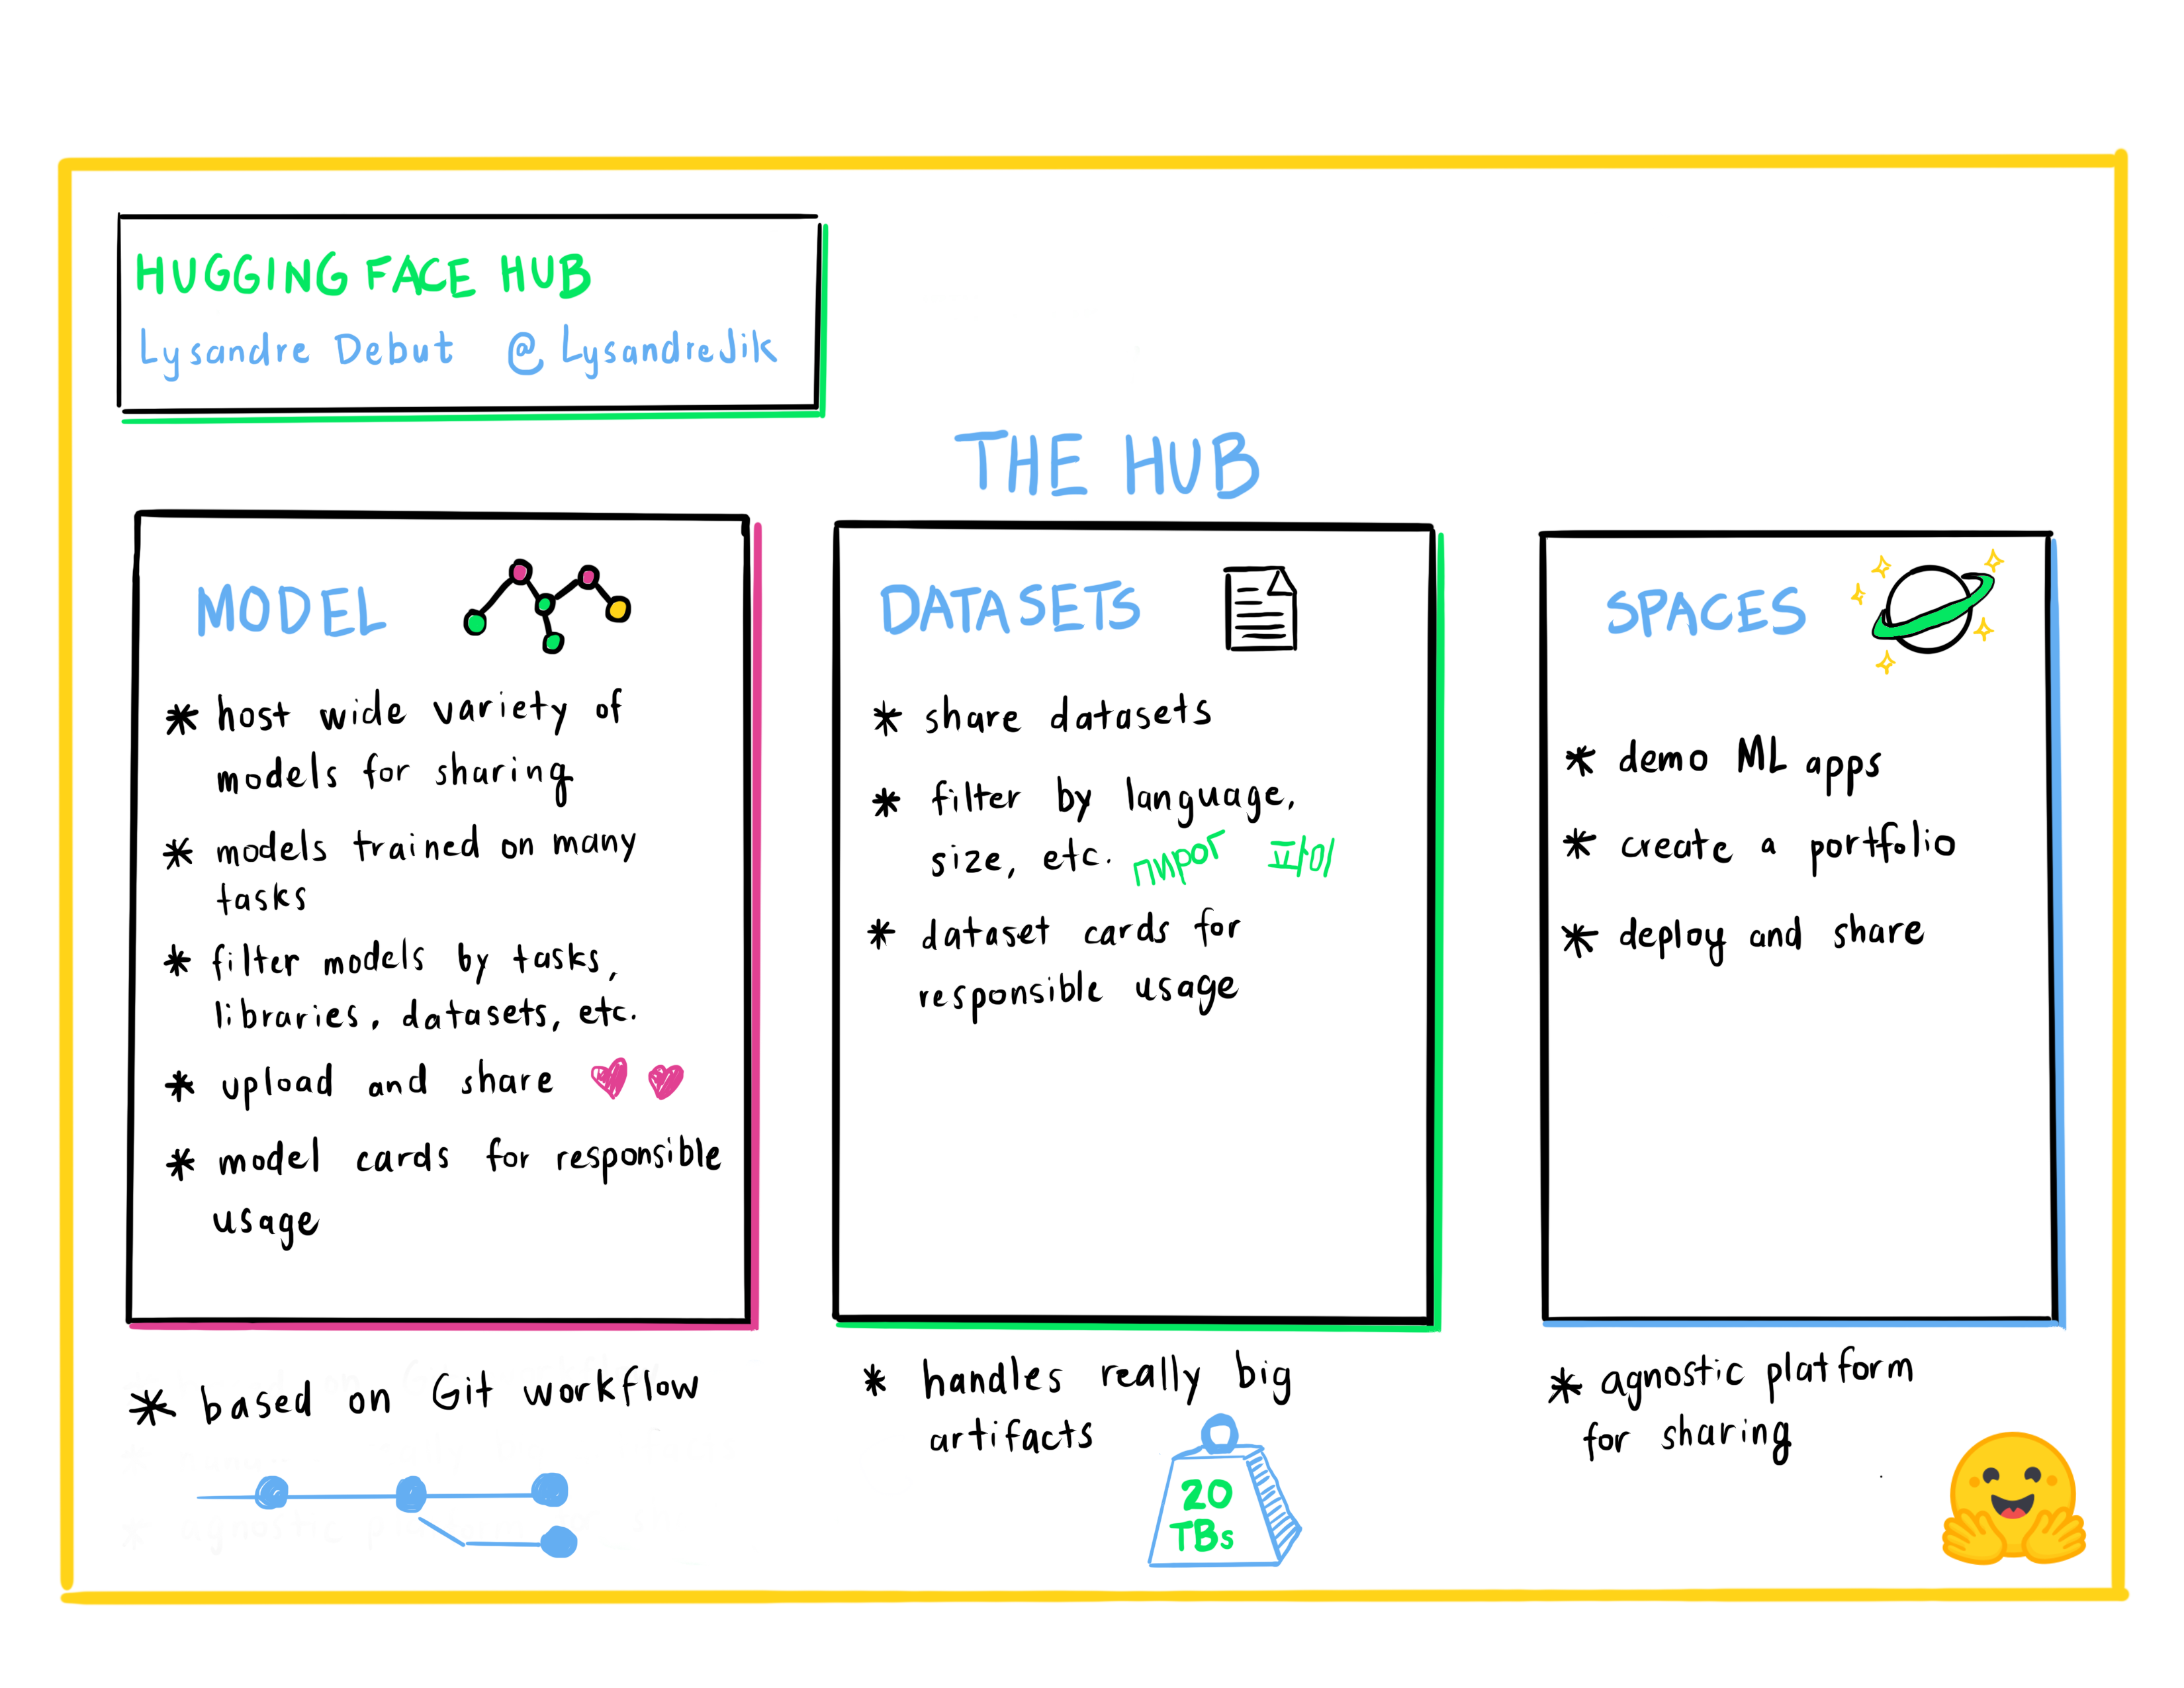 HUGGING FACE HUB
Lysandre Debut @LysandreJik
THE HUB
MODEL
* host wide variety of
models for sharing
* models trained on many
tasks
* filter models by tasks,
libraries, datasets, etc.
* upload and share
* model cards for responsible
usage
DATASETS
* share datasets
* filter by language,
size, etc. пирог 파이
* dataset cards for
responsible usage
SPACES
* demo ML apps
* create a portfolio
* deploy and share
* based on Git workflow
* handles really big
artifacts
20
TBs
* agnostic platform
for sharing